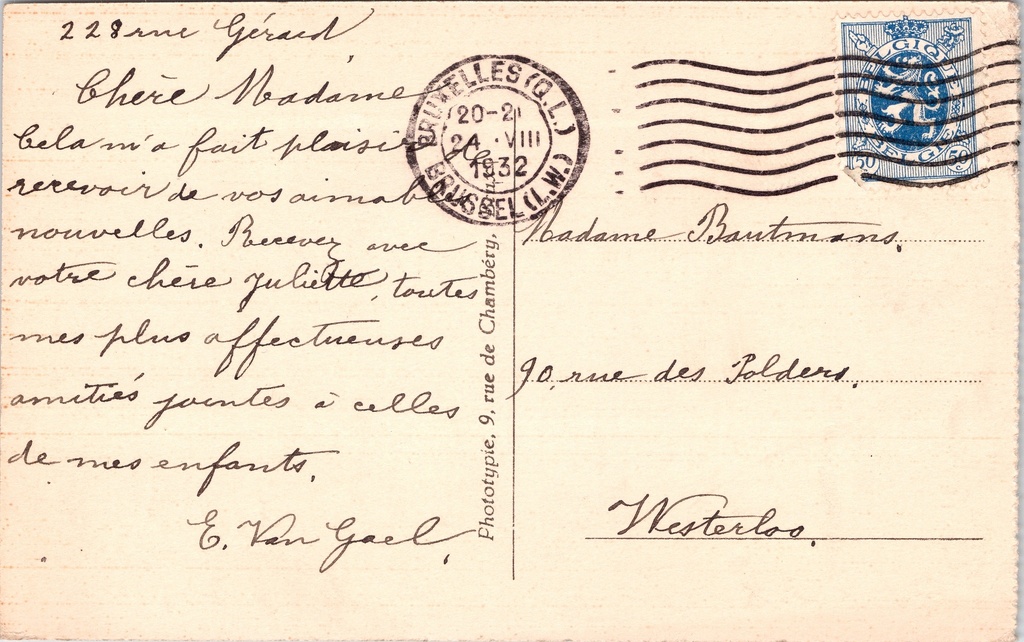 228 rue Gérard
Chère Madame
Cela m'a fait plaisir
recevoir de vos aimables
nouvelles. Recevez avec
votre chère Juliette, toutes
mes plus affectueuses
amitiés jointes à celles
de mes enfants.
E. Van Gael.
BRUXELLES (Q.L.)
20-21
24 VIII
1932
BRUSSEL (L.W.)
BELGIQUE
BELGIË
50 50
Phototypie, 9, rue de Chambéry,
Madame Bautmans.
90, rue des Polders.
Westerloo.